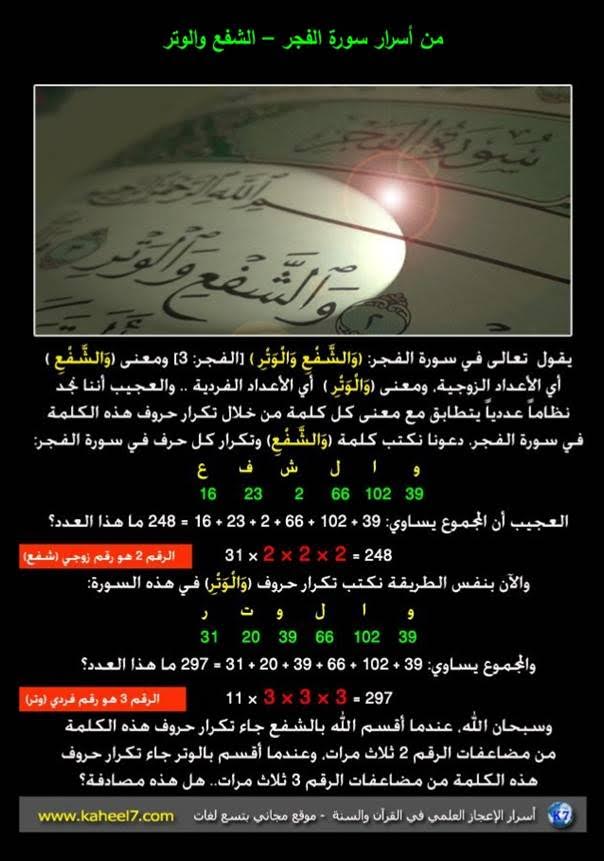 من أسرار سورة الفجر – الشفع والوتر
سُورَةُ الفَجْرِ
وَالشَّفْعِ وَالْوَتْرِ
يقول تعالى في سورة الفجر: (وَالشَّفْعِ وَالْوَتْرِ) [الفجر: 3] ومعنى (وَالشَّفْعِ)
أي الأعداد الزوجية، ومعنى (وَالْوَتْرِ) أي الأعداد الفردية .. والعجيب أننا نجد
نظاماً عددياً يتطابق مع معنى كل كلمة من خلال تكرار حروف هذه الكلمة
في سورة الفجر. دعونا نكتب كلمة (وَالشَّفْعِ) وتكرار كل حرف في سورة الفجر:
و ا ل ش ف ع
39 102 66 2 23 16
العجيب أن المجموع يساوي: 39 + 102 + 66 + 2 + 23 + 16 = 248 ما هذا العدد؟
248 = 2 × 2 × 2 × 31
الرقم 2 هو رقم زوجي (شفع)
والآن بنفس الطريقة نكتب تكرار حروف (وَالْوَتْرِ) في هذه السورة:
و ا ل و ت ر
39 102 66 39 20 31
والمجموع يساوي: 39 + 102 + 66 + 39 + 20 + 31 = 297 ما هذا العدد؟
297 = 3 × 3 × 3 × 11
الرقم 3 هو رقم فردي (وتر)
وسبحان الله، عندما أقسم الله بالشفع جاء تكرار حروف هذه الكلمة
من مضاعفات الرقم 2 ثلاث مرات، وعندما أقسم بالوتر جاء تكرار حروف
هذه الكلمة من مضاعفات الرقم 3 ثلاث مرات.. هل هذه مصادفة؟
K7 أسرار الإعجاز العلمي في القرآن والسنة - موقع مجاني بتسع لغات www.kaheel7.com